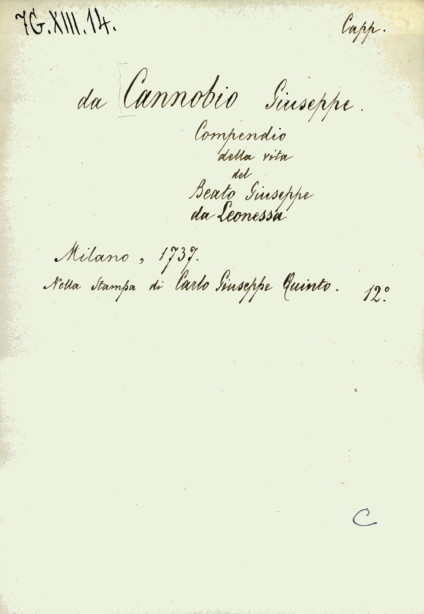 7G.XIII.14.
Capp.
da Cannobio Giuseppe.
Compendio
della vita
del
Beato Giuseppe
da Leonessa
Milano, 1737.
Nella Stampa di Carlo Giuseppe Quinto. 12°.
C